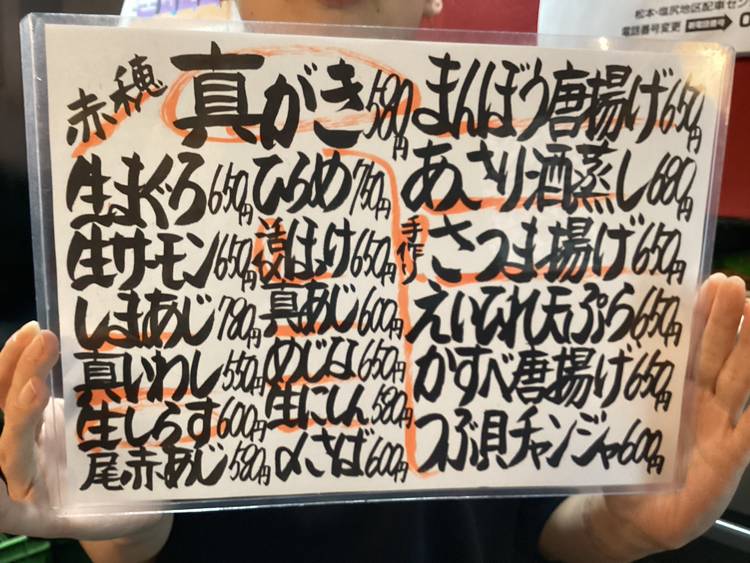 松本・塩尻地区配車セン
電話番号変更
赤穂 真がき 580円
生まぐろ 650円
生サーモン 650円
しまあじ 780円
真いわし 550円
生しらす 600円
尾赤あじ 580円
ひらめ 750円
活〆 ほっけ 650円
真あじ 600円
めじな 650円
生にしん 580円
〆さば 600円
まんぼう唐揚げ 650円
あさり酒蒸し 680円
手作り さつま揚げ 650円
えいひれ天ぷら 650円
かすべ唐揚げ 650円
つぶ貝チャンジャ 600円